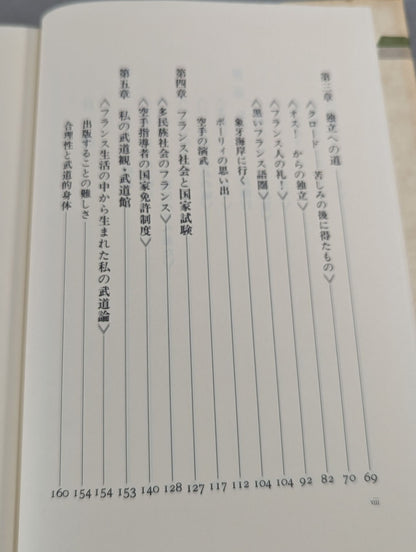 第三章　独立への道 69
《クロード　苦しみの後に得たもの》 70
《オス！　からの独立》 82
《フランス人の礼！》 92
《黒いフランス語圏》 104
象牙海岸に行く 104
ボーリィの思い出 112
空手の演武 117
第四章　フランス社会と国家試験 127
《多民族社会のフランス》 128
《空手指導者の国家免許制度》 140
第五章　私の武道観・武道館 153
《フランス生活の中から生まれた私の武道論》 154
出版することの難しさ 154
合理性と武道的身体 160
viii